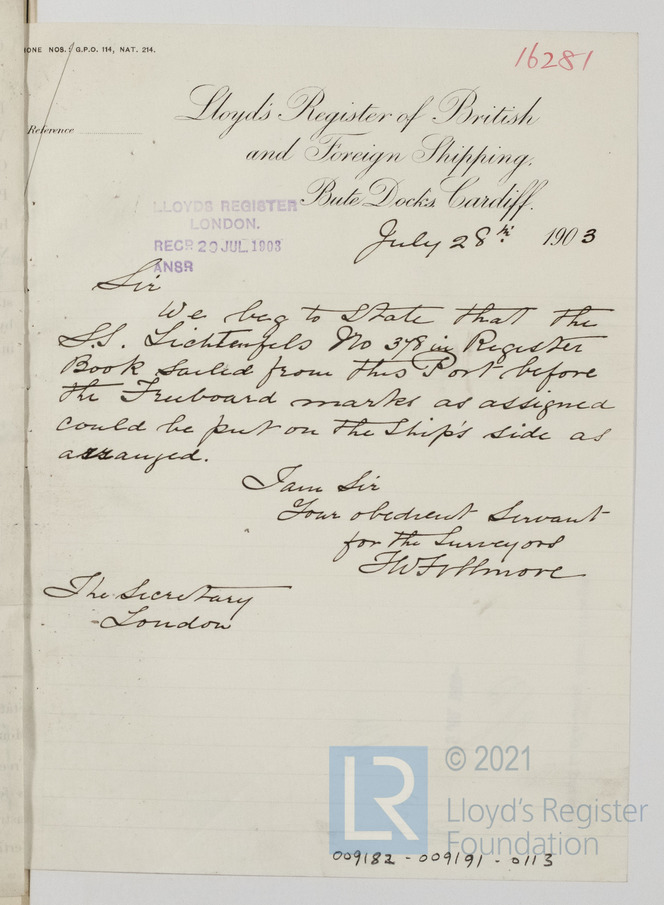 ONE NOS. G.P.O. 114, NAT. 214.
16281
Reference
Lloyd's Register of British
and Foreign Shipping,
Bute Docks, Cardiff.
LLOYDS REGISTER
LONDON.
RECD 29 JUL 1903
ANSR
July 28th 1903
Sir
We beg to State that the
S.S. Lichtenfels No 378 in Register
Book sailed from this Port before
the Freeboard marks as assigned
could be put on the Ship's side as
arranged.
I am Sir
Your obedient Servant
for the Surveyors
The Secretary
London
© 2021
LR
Lloyd's Register
Foundation
009182 - 009191 - 0113